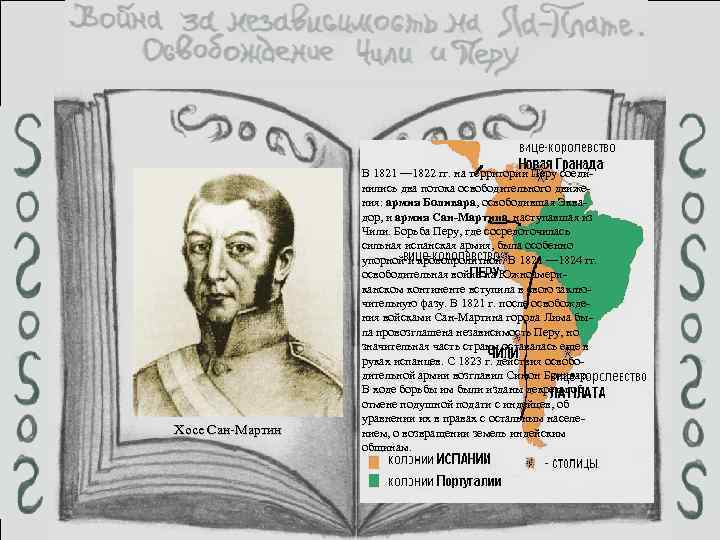 Война за независимость на Ла-Плате.
Освобождение Чили и Перу
вице-королевство
Новая Гранада
В 1821 —1822 гг. на территории Перу соеди-
нились два потока освободительного движе-
ния: армия Боливара, освободившая Эква-
дор, и армия Сан-Мартина, наступавшая из
Чили. Борьба Перу, где сосредоточилась
сильная испанская армия, была особенно
упорной и кровопролитной. В 1821 —1824 гг.
освободительная война на Южноамери-
канском континенте вступила в свою заклю-
чительную фазу. В 1821 г. после освобожде-
ния войсками Сан-Мартина города Лима бы-
ла провозглашена независимость Перу, но
значительная часть страны оставалась еще в
руках испанцев. С 1823 г. действия освобо-
дительной армии возглавил Симон Боливар.
В ходе борьбы им были изданы декреты об
отмене подушной подати с индейцев, об
уравнении их в правах с остальным населе-
нием, о возвращении земель индейским
общинам.
вице-королевство
ПЕРУ
ЧИЛИ
вице-королевство
ЛА-ПЛАТА
Хосе Сан-Мартин
колонии ИСПАНИИ
- столицы
колонии Португалии